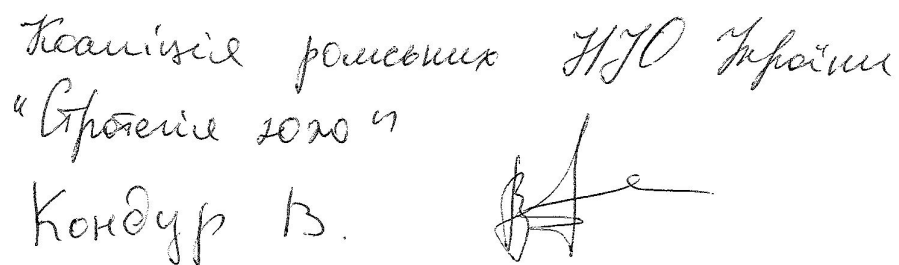 Коаліція ромських НУО України
"Стратегія 2020"
Кондур В.